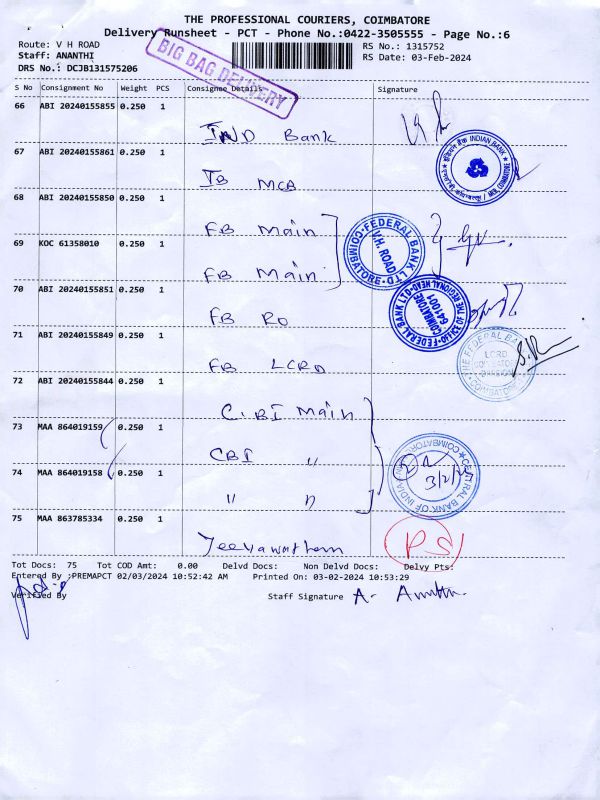 THE PROFESSIONAL COURIERS, COIMBATORE
Delivery Runsheet - PCT - Phone No.:0422-3505555 - Page No.:6
Route: V H ROAD
RS No.: 1315752
Staff: ANANTHI
RS Date: 03-Feb-2024
DRS No.: DCJB131575206
BIG BAG DELIVERY
S No Consignment No Weight PCS Consignee Details Signature
66 ABI 20240155855 0.250 1
IND Bank
67 ABI 20240155861 0.250 1
IB MCA
68 ABI 20240155850 0.250 1
FB Main
69 KOC 61358010 0.250 1
FB Main
70 ABI 20240155851 0.250 1
FB RO
71 ABI 20240155849 0.250 1
FB LCRD
72 ABI 20240155844 0.250 1
C.BI Main
73 MAA 864019159 0.250 1
CBI "
74 MAA 864019158 0.250 1
" "
75 MAA 863785334 0.250 1
PS
INDIAN BANK
FEDERAL BANK LTD
V.H. ROAD
COIMBATORE
COIMBATORE
641001
THE FEDERAL BANK
LCRD
CENTRAL BANK OF INDIA
COIMBATORE
3/2/24
Tot Docs: 75 Tot COD Amt: 0.00 Delvd Docs: Non Delvd Docs: Delvy Pts:
Entered By :PREMAPCT 02/03/2024 10:52:42 AM Printed On: 03-02-2024 10:53:29
Verified By
Staff Signature A.